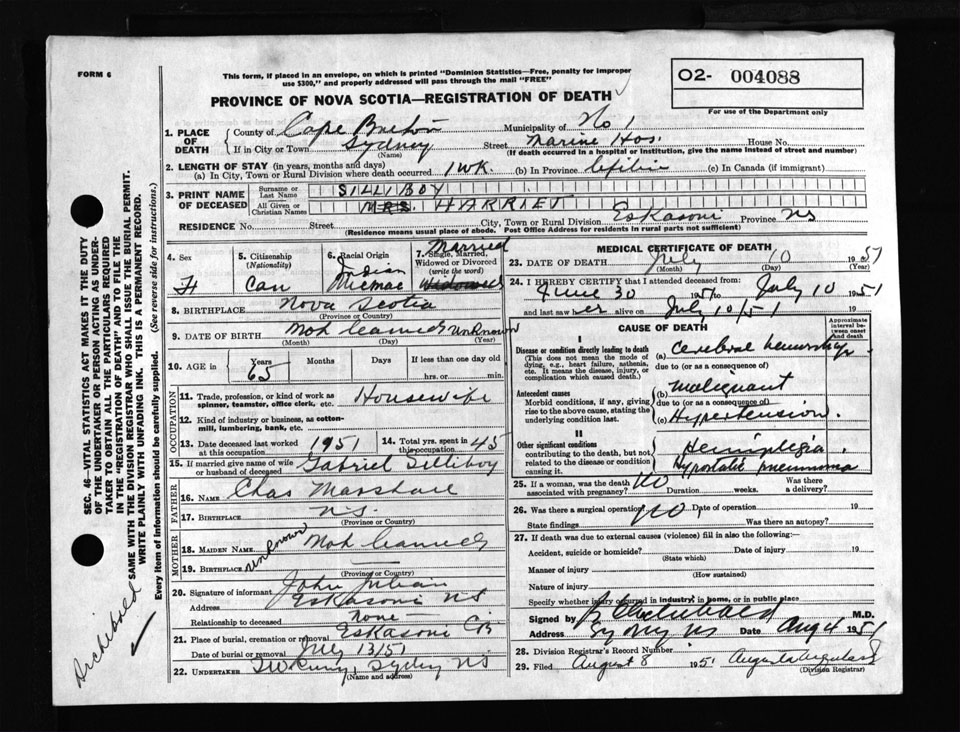 FORM 6
This form, if placed in an envelope, on which is printed "Dominion Statistics—Free, penalty for improper
use $300," and properly addressed will pass through the mail "FREE"
O2- 004088
For use of the Department only
PROVINCE OF NOVA SCOTIA—REGISTRATION OF DEATH
1. PLACE OF DEATH { County of Cape Breton Municipality of No 1
If in City or Town Sydney (Name) Street Marine Hos. House No.
(If death occurred in a hospital or institution, give the name instead of street and number)
2. LENGTH OF STAY (in years, months and days)
(a) In City, Town or Rural Division where death occurred 1 WK. (b) In Province (c) In Canada (if immigrant)
3. PRINT NAME OF DECEASED { Surname or Last Name SILLIBOY
All Given or Christian Names MRS. HARRIET
RESIDENCE No. Street City, Town or Rural Division Eskasoni Province NS
(Residence means usual place of abode. Post Office Address for Residents in rural parts not sufficient)
4. Sex F
5. Citizenship (Nationality) Can
6. Racial Origin Indian Micmac
7. Single, Married, Widowed or Divorced (write the word) Married Widowed
8. BIRTHPLACE Nova Scotia
(Province or Country)
9. DATE OF BIRTH Unknown
(Month) (Day) (Year)
10. AGE in { Years 65 Months Days If less than one day old
hrs. or min.
OCCUPATION
11. Trade, profession, or kind of work as spinner, teamster, office clerk, etc. Housewife
12. Kind of industry or business, as cotton-mill, lumbering, bank, etc.
13. Date deceased last worked at this occupation 1951 14. Total yrs. spent in this occupation 45
15. If married give name of wife or husband of deceased Gabriel Silliboy
FATHER
16. NAME Chas Marshall
17. BIRTHPLACE N.S.
(Province or Country)
MOTHER
18. MAIDEN NAME
19. BIRTHPLACE unknown
(Province or Country)
20. Signature of informant John Julian
Address Eskasoni NS
Relationship to deceased none
21. Place of burial, cremation or removal Eskasoni CB
Date of burial or removal July 13/51
22. UNDERTAKER Sydney NS
(Name and address)
MEDICAL CERTIFICATE OF DEATH
23. DATE OF DEATH July 10 1951
(Month) (Day) (Year)
24. I HEREBY CERTIFY that I attended deceased from:
June 30 1951 to July 10 1951
and last saw her alive on July 10/51 19
CAUSE OF DEATH
Approximate interval between onset and death
I
Disease or condition directly leading to death
(This does not mean the mode of dying, e.g., heart failure, asthenia, etc. It means the disease, injury, or complication which caused death.)
(a) Cerebral hemorrhage
due to (or as a consequence of)
Antecedent causes
Morbid conditions, if any, giving rise to the above cause, stating the underlying condition last.
(b) Malignant
due to (or as a consequence of)
(c) Hypertension.
II
Other significant conditions
contributing to the death, but not related to the disease or condition causing it.
Hemiplegia
Hypostatic pneumonia
25. If a woman, was the death associated with pregnancy? No Duration weeks. Was there a delivery?
26. Was there a surgical operation? No. Date of operation 19
State findings Was there an autopsy?
27. If death was due to external causes (violence) fill in also the following:
Accident, suicide or homicide? Date of injury 19
(State which)
Manner of injury
(How sustained)
Nature of injury
Specify whether injury occurred in industry, in home, or in public place
Signed by Archibald M.D.
Address Sydney NS Date Aug 4 1951
28. Division Registrar's Record Number
29. Filed August 8 1951
(Division Registrar)
SEC. 46—VITAL STATISTICS ACT MAKES IT THE DUTY
OF THE UNDERTAKER OR PERSON ACTING AS UNDER-
TAKER TO OBTAIN ALL THE PARTICULARS REQUIRED
IN THE "REGISTRATION OF DEATH" AND TO FILE THE
SAME WITH THE DIVISION REGISTRAR WHO SHALL ISSUE THE BURIAL PERMIT.
WRITE PLAINLY WITH UNFADING INK. THIS IS A PERMANENT RECORD.
Every item of Information should be carefully supplied. (See reverse side for instructions.)
Archibald